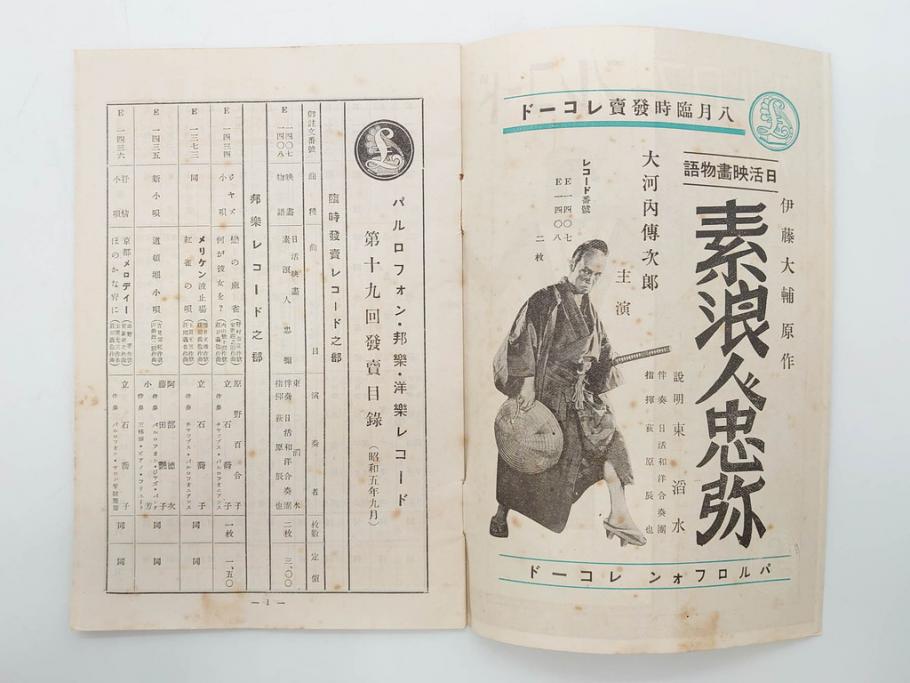 八月臨時發賣レコード
日活映畫物語
伊藤大輔原作
素浪人忠弥
大河內傳次郎
主演
レコード番號
E一四〇七
E一四〇八
二枚
說明 東滔水
伴奏 日活和洋合奏團
指揮 萩原辰也
パルロフォン レコード
パルロフォン・邦樂・洋樂レコード
第十九回發賣目錄
(昭和五年九月)
臨時發賣レコード之部
御註文番號 曲種 曲目 演奏者 枚數 定價
E 一四〇七 映畫物語 日活映畫 東滔水 二枚 三、〇〇
一四〇八 素浪人忠彌 伴奏 日活和洋合奏團
指揮 萩原辰也
邦樂レコード之部
E 一四三四 ジャズ小唄 戀の麻雀 原野百合子 一枚 一、五〇
何が彼女を?
立石喬子
E 一三七三 同 メリケン波止場 立石喬子 同 同
紅雀の唄
E 一四三五 新小唄 道頓堀小唄 阿部德次 同 同
藤田艷子
E 一四三六 抒情小唄 京都メロデイー 立石喬子 同 同
ほのかな宵に
— 1 —